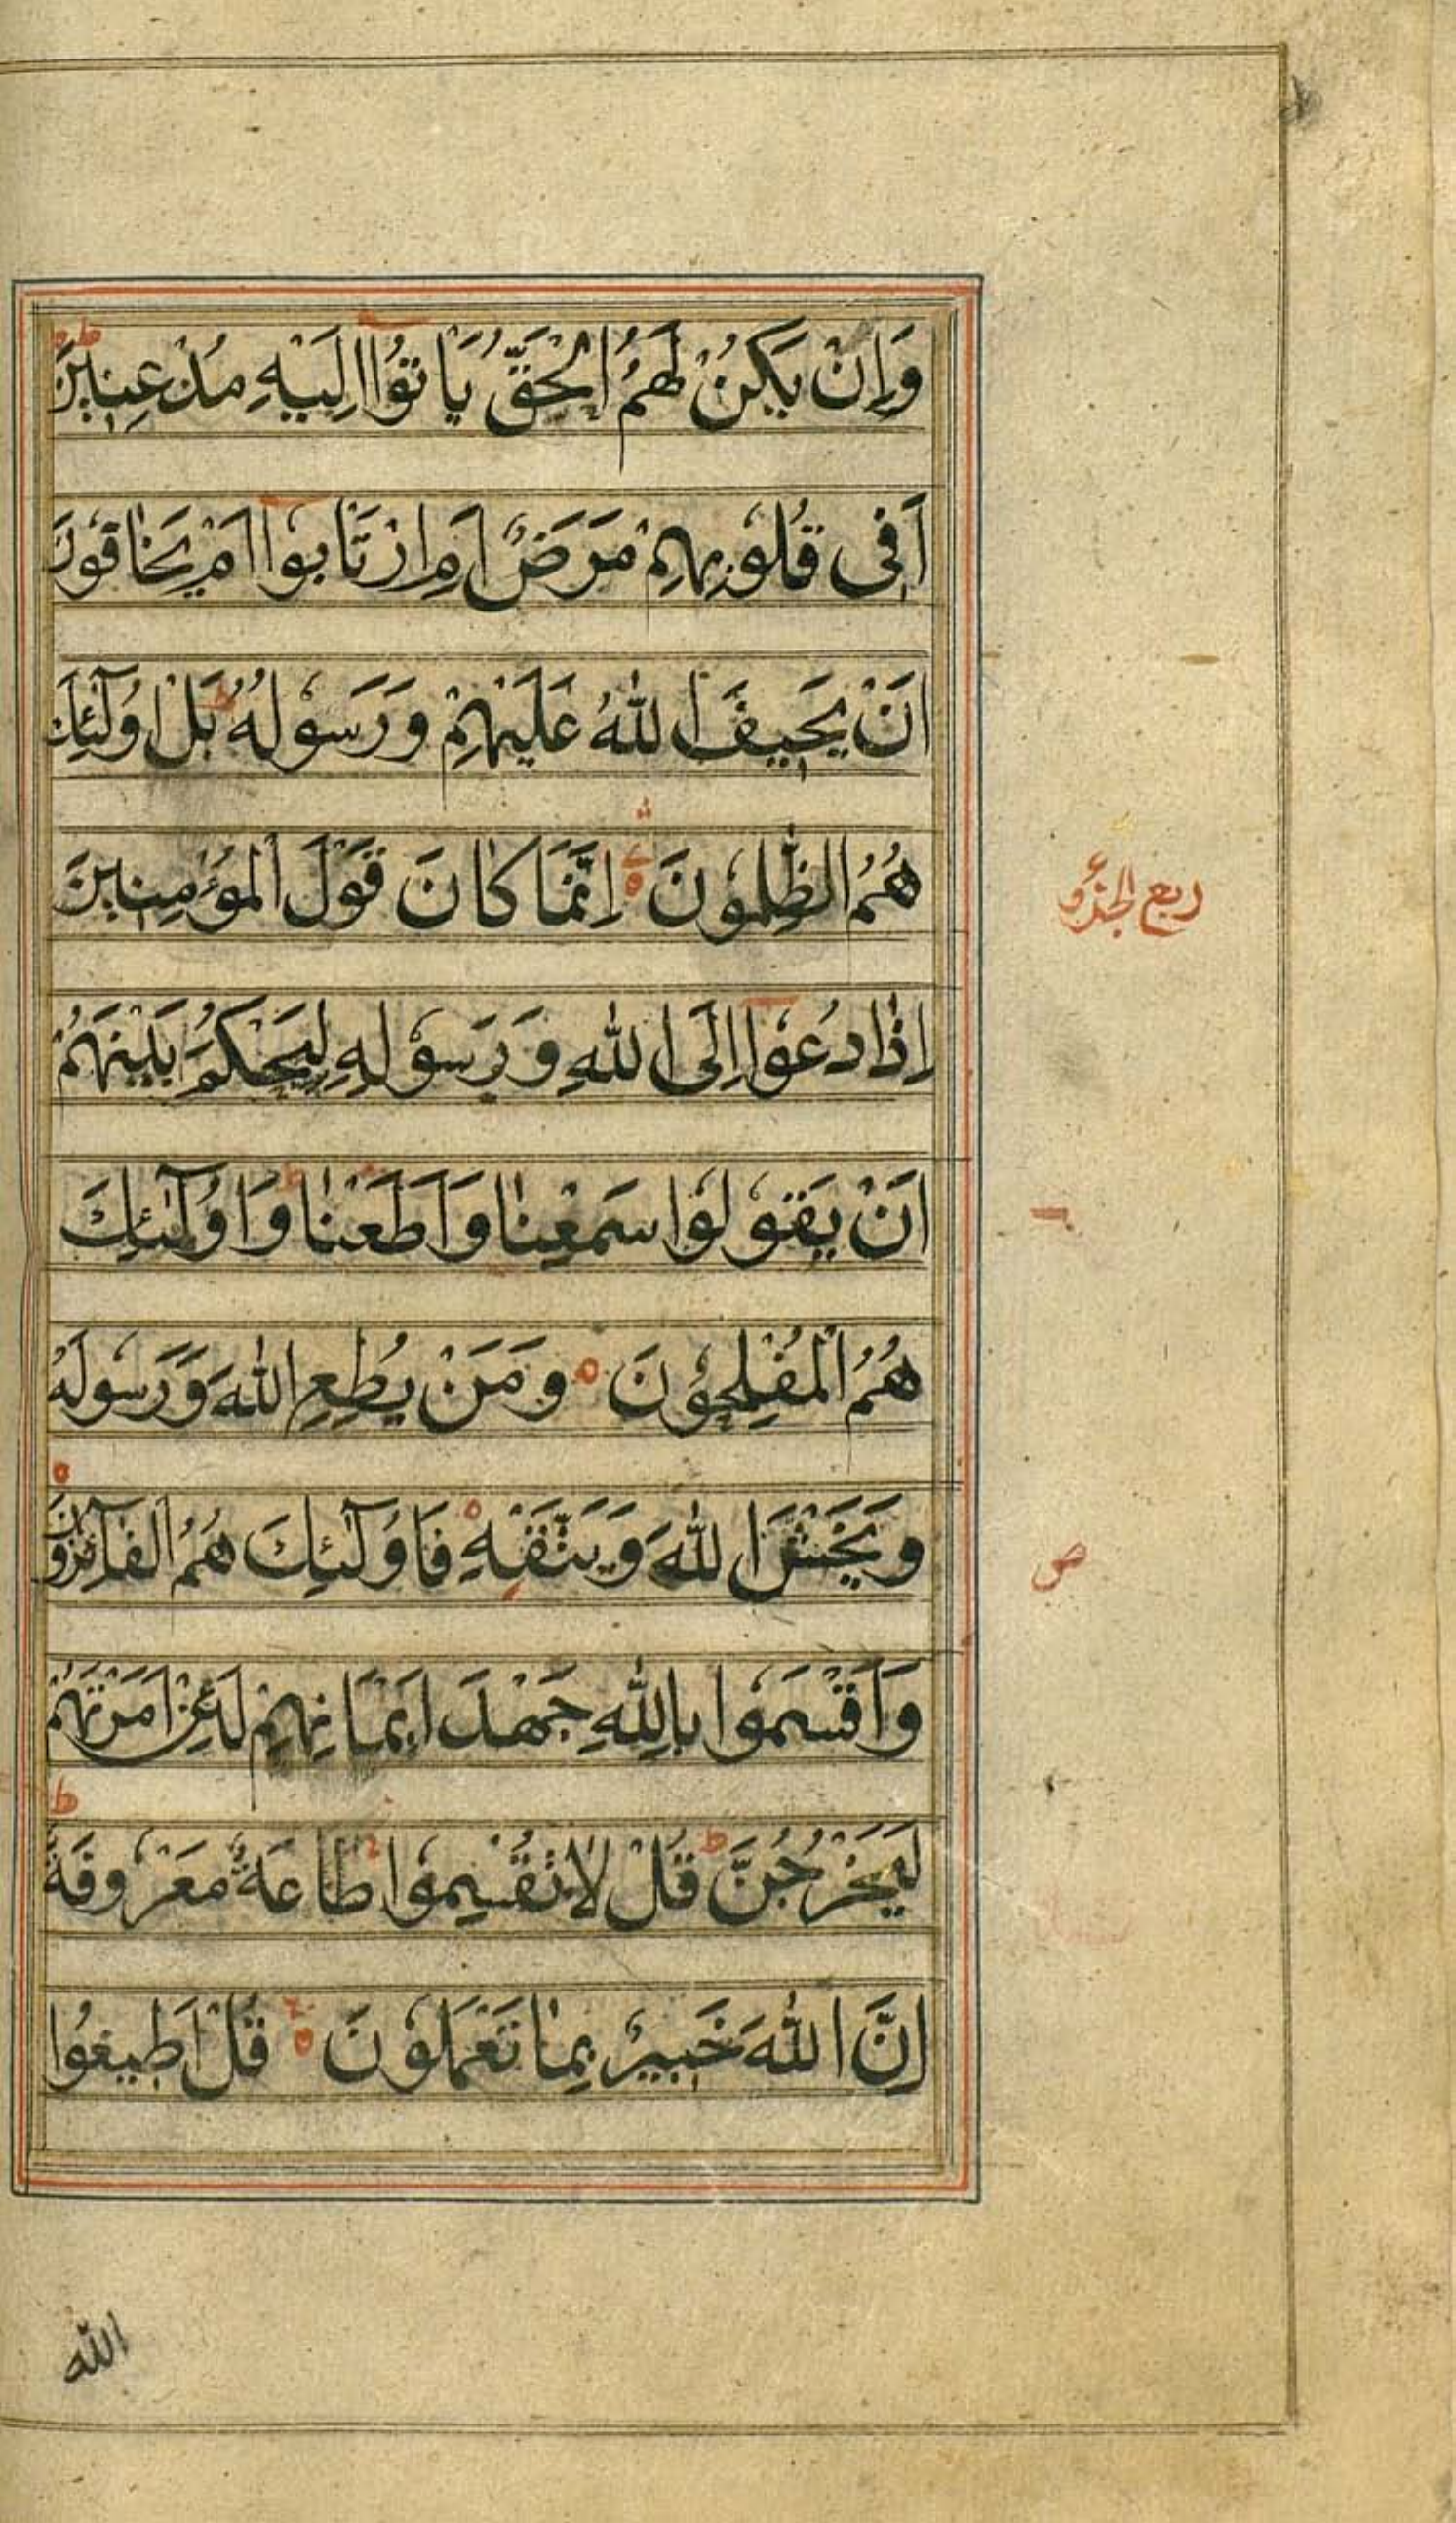 وَاِنْ يَكُنْ لَهُمُ الْحَقُّ يَاْتُوْا اِلَيْهِ مُذْعِنِيْنَ ط
اَفِى قُلُوْبِهِمْ مَرَضٌ اَمِ ارْتَابُوْا اَمْ يَخَافُوْنَ
اَنْ يَحِيْفَ اللّٰهُ عَلَيْهِمْ وَرَسُوْلُهُ ط بَلْ اُولٰٓئِكَ
هُمُ الظّٰلِمُوْنَ اِنَّمَا كَانَ قَوْلَ الْمُؤْمِنِيْنَ
ربع الجزو
اِذَا دُعُوْا اِلَى اللّٰهِ وَرَسُوْلِهِ لِيَحْكُمَ بَيْنَهُمْ
اَنْ يَقُوْلُوْا سَمِعْنَا وَاَطَعْنَا ط وَاُولٰٓئِكَ
هُمُ الْمُفْلِحُوْنَ وَمَنْ يُطِعِ اللّٰهَ وَرَسُوْلَهُ
وَيَخْشَ اللّٰهَ وَيَتَّقْهِ فَاُولٰٓئِكَ هُمُ الْفَآئِزُوْنَ
ص
وَاَقْسَمُوْا بِاللّٰهِ جَهْدَ اَيْمَانِهِمْ لَئِنْ اَمَرْتَهُمْ
لَيَخْرُجُنَّ ط قُلْ لَا تُقْسِمُوْا طَاعَةٌ مَعْرُوْفَةٌ ط
اِنَّ اللّٰهَ خَبِيْرٌ بِمَا تَعْمَلُوْنَ قُلْ اَطِيْعُوْا
الله